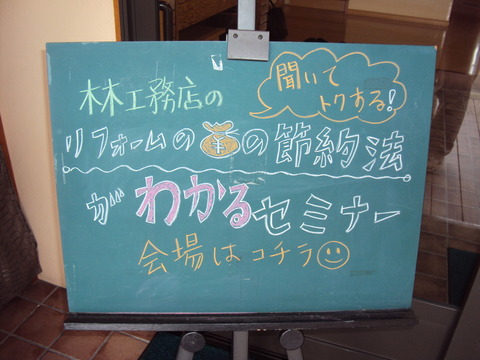 林工務店の
聞いて
トクする!
リフォームの¥の節約法
がわかるセミナー
会場はコチラ